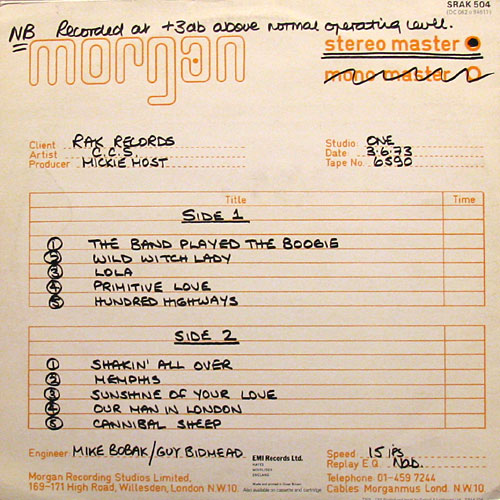 SRAK 504
NB Recorded at +3db above normal operating level.
morgan
stereo master
mono master
Client RAK RECORDS
Artist C.C.S.
Producer MICKIE MOST
Studio ONE
Date 3.6.73
Tape No. 6590
Title Time
SIDE 1
1 THE BAND PLAYED THE BOOGIE
2 WILD WITCH LADY
3 LOLA
4 PRIMITIVE LOVE
5 HUNDRED HIGHWAYS
SIDE 2
1 SHAKIN' ALL OVER
2 MEMPHIS
3 SUNSHINE OF YOUR LOVE
4 OUR MAN IN LONDON
5 CANNIBAL SHEEP
Engineer MIKE BOBAK/GUY BIDMEAD
EMI Records Ltd.
HAYES
MIDDLESEX
ENGLAND
Made and printed in Great Britain
Also available on cassette and cartridge
Speed 15 ips
Replay E.Q. NAB.
Morgan Recording Studios Limited.
169-171 High Road, Willesden, London N.W.10.
Telephone 01-459 7244
Cables Morganmus Lond. N.W.10